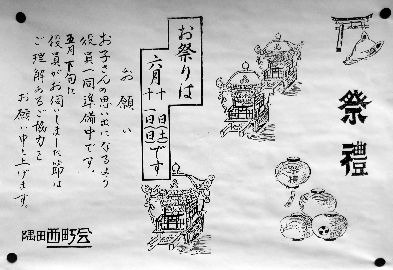 祭禮
お祭りは
六月十日(土)
十一日(日)です
お願い
お子さんの思い出になるよう
役員一同準備中です。
五月下旬に
役員がお伺いしました節は
ご理解あるご協力を
お願い申し上げます。
隅田西町会